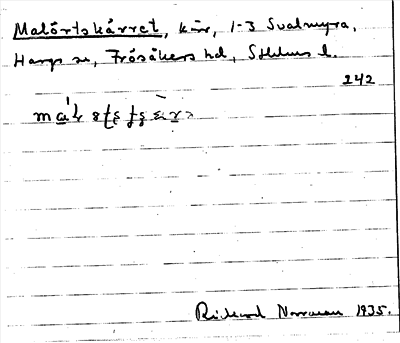 Malörtskärret, kärr, 1-3 Svalmyra,
Hargs sn, Frösåkers hd, Sthlms l.
242
Rickard Norrman 1935.